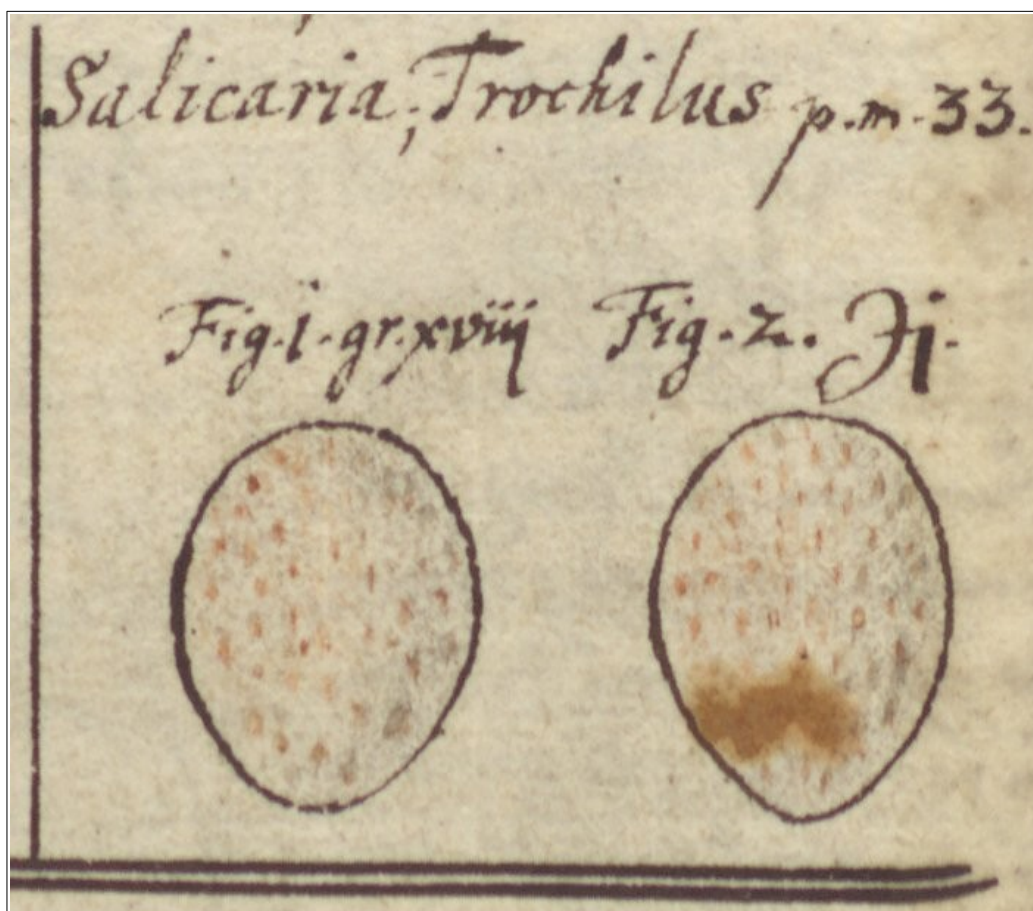 Salicaria, Trochilus p.m. 33.
Fig. 1. gr. xviij Fig. 2. ℈j.